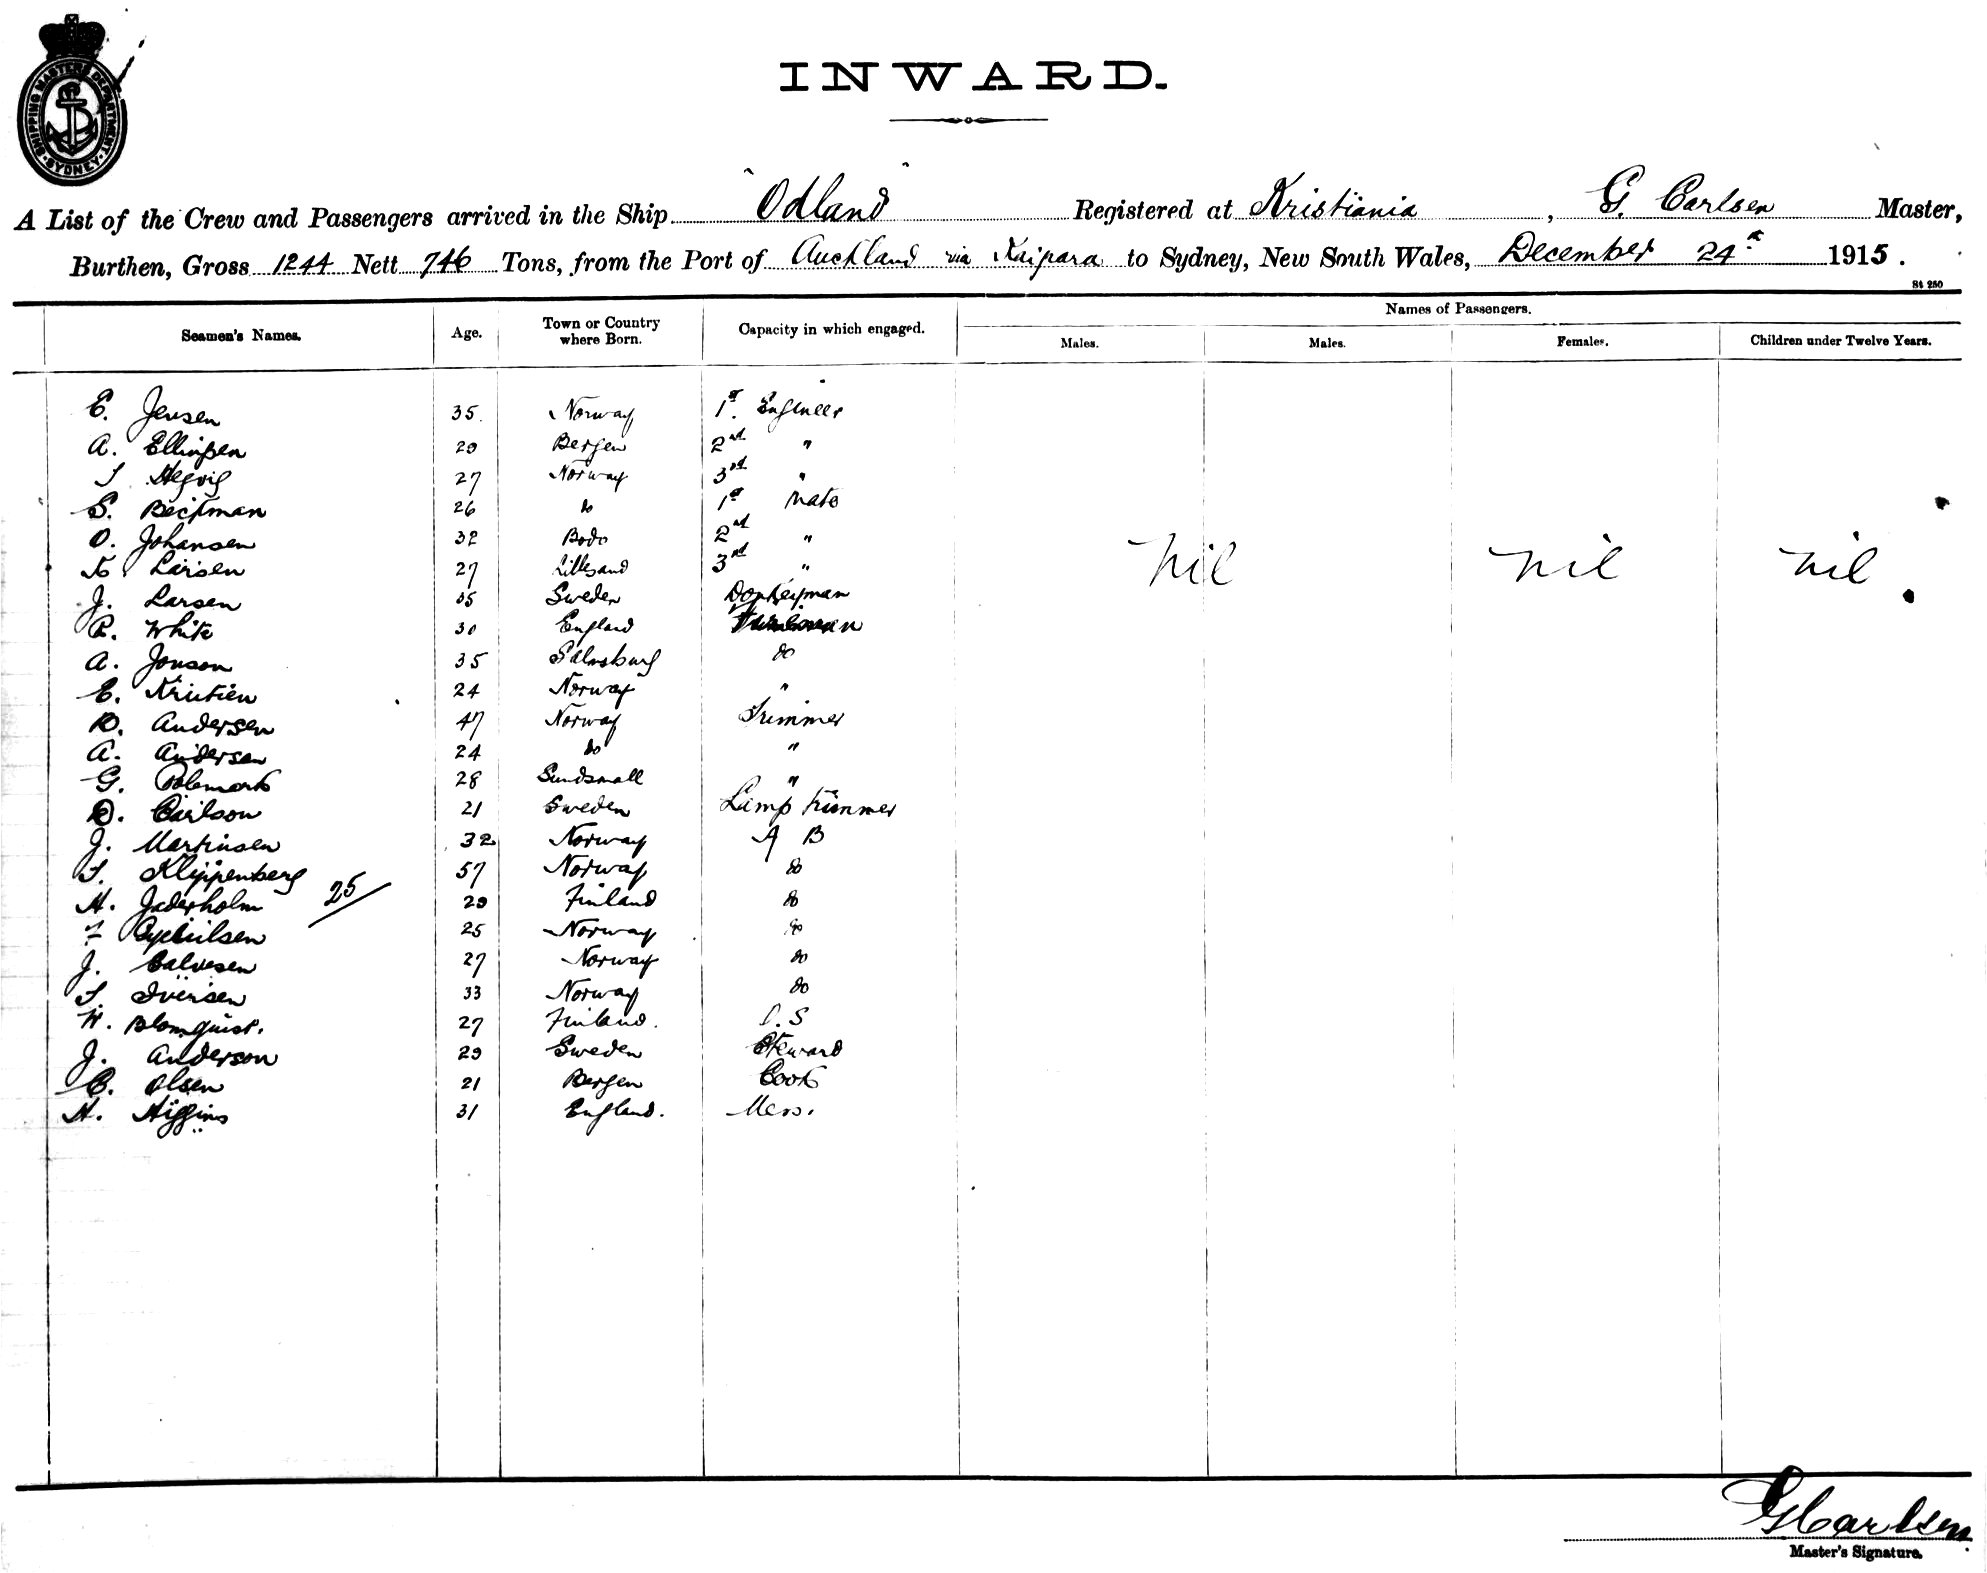 SHIPPING MASTERS DEPARTMENT · SYDNEY ·
INWARD.
A List of the Crew and Passengers arrived in the Ship "Odland" Registered at Kristiania, G. Carlsen Master,
Burthen, Gross 1244 Nett 746 Tons, from the Port of Auckland via Kaipara to Sydney, New South Wales, December 24th 1915.
St 250
Names of Passengers.
Seamen's Names. Age. Town or Country where Born. Capacity in which engaged. Males. Males. Females. Children under Twelve Years.
E. Jensen 35. Norway 1st. Engineer
A. Ellingsen 29 Bergen 2nd "
27 Norway 3rd "
S. Beckman 26 do 1st Mate
O. Johansen 32 Bodo 2nd "
K Larsen 27 Lillesand 3rd "
Nil Nil Nil
J. Larsen 35 Sweden Donkeyman
R. White 30 England
A. Jonson 35 do
E. 24 Norway "
D. Andersen 47 Norway Trimmer
A. Andersen 24 do "
G. 28 Sundsmall "
D. Carlson 21 Sweden Lamp trimmer
J. Martinsen 32 Norway A B
S. Klippenberg 57 Norway do
25
H. Jaderholm 29 Finland do
25 Norway do
J. Salvesen 27 Norway do
S. Iversen 33 Norway do
W. Blomquist. 27 Finland. O.S
J. Anderson 29 Sweden Steward
C. Olsen 21 Bergen Cook
H. Higgins 31 England. Mess.
G Carlsen
Master's Signature.